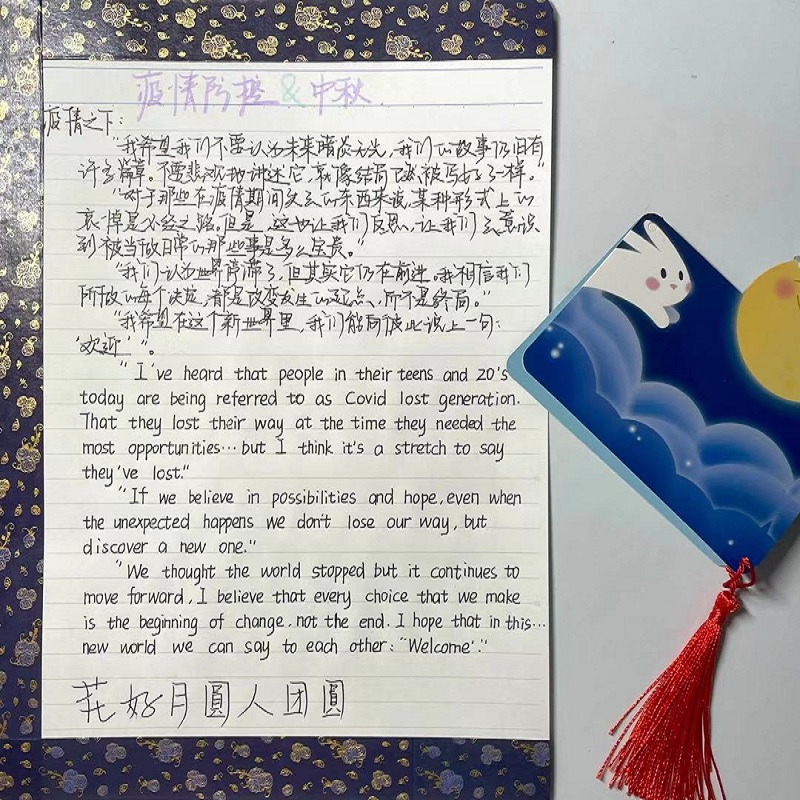 疫情防控&中秋
疫情之下:
"我希望我们不要认为未来暗淡无光,我们的故事仍旧有
许多篇章。不要悲观地讲述它,就像结局已经被写好了一样。"
"对于那些在疫情期间失去的东西来说,某种形式上的
哀悼是必经之路。但是,这也让我们反思,让我们去意识
到被当做日常的那些事是多么宝贵。"
"我们认为世界停滞了,但其实它仍在前进。我相信我们
所做的每个决定,都是改变发生的起点、所不是终局。"
"我希望在这个新世界里,我们能向彼此说上一句:
'欢迎'"。
"I've heard that people in their teens and 20's
today are being referred to as Covid lost generation.
That they lost their way at the time they needed the
most opportunities...but I think it's a stretch to say
they've lost."
"If we believe in possibilities and hope, even when
the unexpected happens we don't lose our way, but
discover a new one."
"We thought the world stopped but it continues to
move forward. I believe that every choice that we make
is the beginning of change, not the end. I hope that in this...
new world we can say to each other: "Welcome'."
花好月圓人团圓